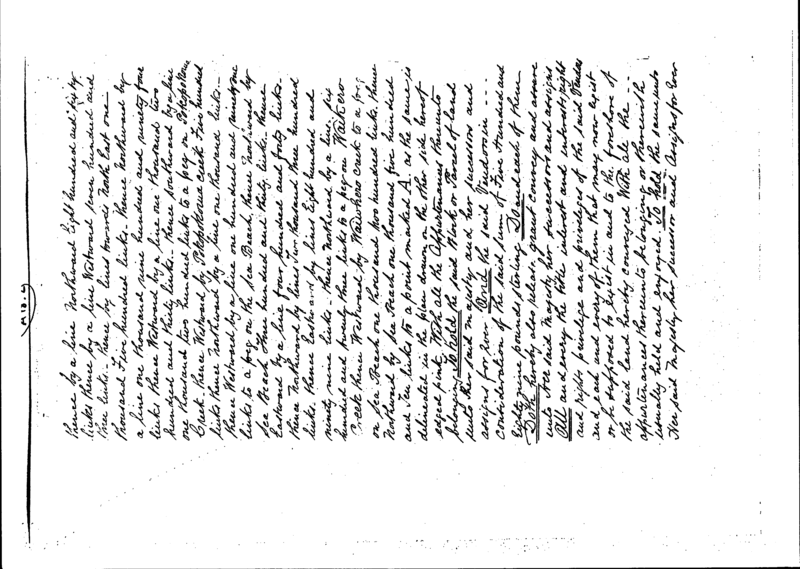 thence by a line Northward Eight hundred and sixty
links thence by a line Westward seven hundred and
three links - thence by lines towards North East one
thousand Five hundred links. thence Northward by
a line one thousand nine hundred and ninety four
links thence Westward by a line one thousand two
hundred and thirty links - thence Southward by a line
one thousand two hundred links to a peg on
Creek thence Westward by creek Five hundred
links thence Northward by a line one thousand links -
thence Westward by a line one hundred and ninety one
links to a peg on the Sea Beach, thence Northward by
Sea Beach three hundred and thirty links. thence
Eastward by a line four hundred and forty links -
thence Northward by lines Two thousand three hundred
links thence Eastward by lines Eight hundred and
ninety nine links - thence Northward by a line six
hundred and twenty three links to a peg on
Creek thence Westward by creek to a peg
on Sea Beach one thousand two hundred links, thence
Northward by Sea Beach one thousand four hundred
and Ten links to a point marked A. as the same is
delineated in the plan drawn on the other side hereof
edged pink With all the Appurtenances thereunto
belonging To hold the said Block or Parcel of Land
unto Her said Majesty and her successors and
assigns for ever And the said Vendors in - - -
consideration of the said sum of Five Hundred and
Eighty nine pounds sterling Do and each of them
Doth hereby also release grant convey and assure
unto Her said Majesty her successors and assigns
All and every the title interest and interests right
and rights privilege and privileges of the said Vendors
and each and every of them that may now exist
or be supposed to exist in and to the foreshore of
the said land hereby conveyed With all the - -
appurtenances thereunto belonging or therewith
usually held and enjoyed To hold the same unto
Her said Majesty her successors and Assigns for Ever